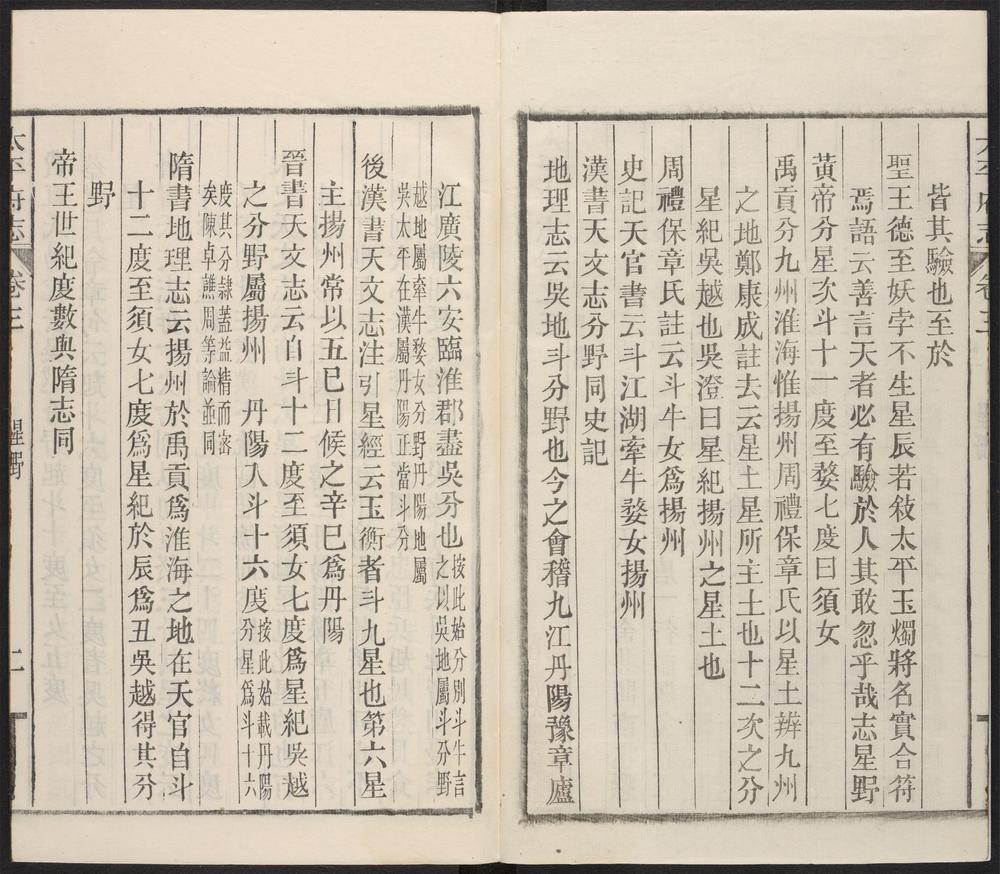 皆其驗也至於
聖王德至妖孛不生星辰若敍太平玉燭將名實合符
焉語云善言天者必有驗於人其敢忽乎哉志星野
黃帝分星次斗十一度至婺七度曰須女
禹貢分九州淮海惟揚州周禮保章氏以星土辨九州
之地鄭康成註云星土星所主土也十二次之分
星紀吳越也吳澄曰星紀揚州之星土也
周禮保章氏註云斗牛女爲揚州
史記天官書云斗江湖牽牛婺女揚州
漢書天文志分野同史記
地理志云吳地斗分野也今之會稽九江丹陽豫章廬
江廣陵六安臨淮郡盡吳分也按此始分別斗牛言
之以吳地屬斗分野
越地屬牽牛婺女分野丹陽地屬
吳太平在漢屬丹陽正當斗分
後漢書天文志注引星經云玉衡者斗九星也第六星
主揚州常以五巳日候之辛巳爲丹陽
晉書天文志云自斗十二度至須女七度爲星紀吳越
之分野屬揚州 丹陽入斗十六度按此始載丹陽
分星爲斗十六
度其分隸蓋益精而密
矣陳卓譙周等論並同
隋書地理志云揚州於禹貢爲淮海之地在天官自斗
十二度至須女七度爲星紀於辰爲丑吳越得其分
野
帝王世紀度數與隋志同
太平府志 卷三 星野 二